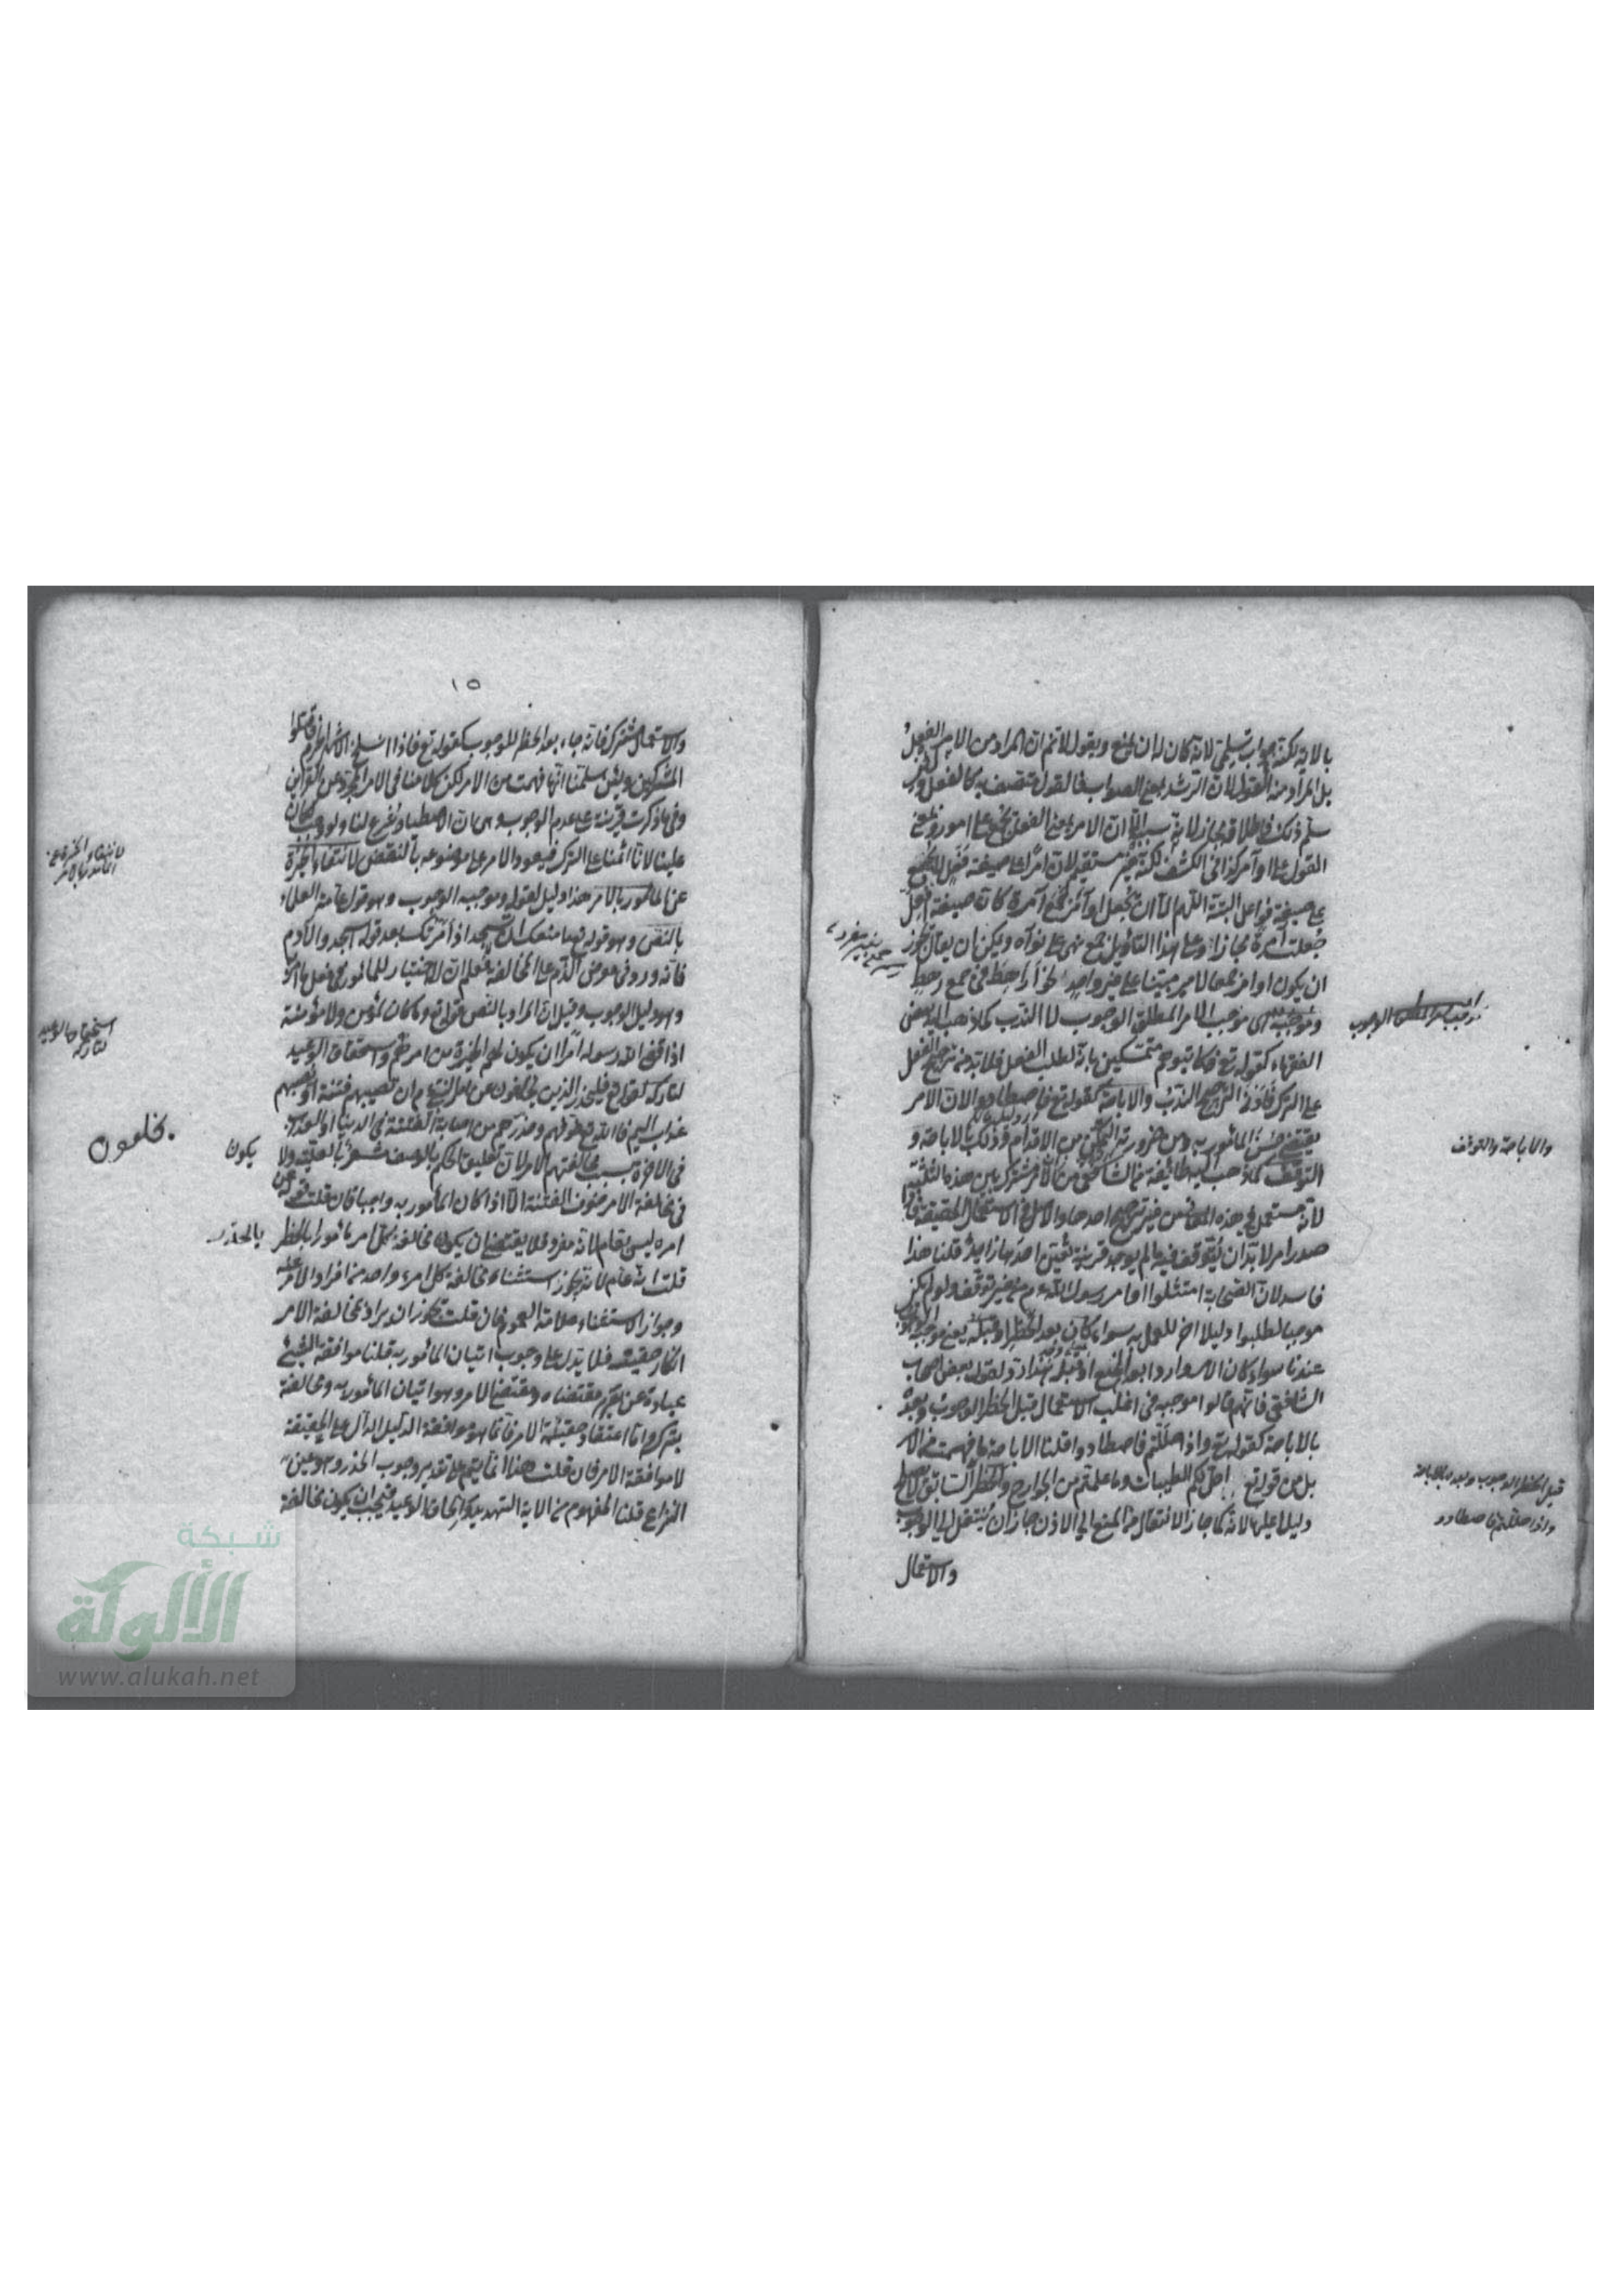 بالاية لكنه جواب تسليمي لانه كان له ان يمنع ويقول لا نم ان المراد من الامر الفعل
بل المراد منه القول لان الرشد بمعنى الصواب فالقول يتصف به كالفعل
سلم ذلك فاطلاقه مجاز لانه سببه ان الامر بمعنى الفعل يجمع على امور وبمعنى
القول على اوامر كذا في الكشف لكنه غير مستقيم لان امرا على صيغة فعل لا يجمع
على صيغة فواعل البتة اللهم الا ان يجعل اوامر جمع آمرة كان صيغة افعل
جعلت آمرة مجازا وعلى هذا التأويل جمع نهي على نواه ويمكن ان يقال يجوز
ان يكون اوامر جمعا لامر مبنيا على غير واحد نحو اراهط في جمع رهط
وموجبه اى موجب الامر المطلق الوجوب لا الندب كما ذهب اليه بعض
الفقهاء كقوله تع فكاتبوهم متمسكين بانه لطلب الفعل فلا بد من ترجيح الفعل
على الترك فادنى الترجيح الندب والاباحة كقوله تع فاصطادوا لان الامر
يقتضي حسن المأمور به ومن ضرورته التمكن من الاقدام وذلك بالاباحة و
التوقف كما ذهب اليه طائفة
لانه مستعمل في هذه المعاني من غير ترجيح احدها والاصل في الاستعمال الحقيقة فاذا
صدر امر لا بد ان يتوقف فيه ما لم يوجد قرينة تعين احدها قلنا هذا
فاسد لان الصحابة امتثلوا اوامر رسول الله عم من غير توقف ولو لم يكن
موجبا لطلبوا دليلا اخر للعمل به سواء كان بعد الحظر او قبله يعني موجبه الوجوب
عندنا سواء كان الامر واردا بعد المنع او قبله هذا رد لقول بعض اصحاب
الشافعي فانهم قالوا موجبه في اغلب الاستعمال قبل الحظر الوجوب وبعده
بالاباحة كقوله تع واذا حللتم فاصطادوا قلنا الاباحة ما فهمت من الامر
بل من قوله تع احل لكم الطيبات وما علمتم من الجوارح والحظر السابق لا يصلح
دليلا عليها لانه كما جاز الانتقال من المنع الى الاذن جاز ان ينتقل الى الوجوب
والاستعمال
موجب الامر المطلق الوجوب
والاباحة والتوقف
قبل الحظر الوجوب وبعده بالاباحة
واذا حللتم فاصطادوا
١٥
والاستعمال مشترك فانه جاء بعد الحظر للوجوب كقوله تع فاذا انسلخ الاشهر الحرم فاقتلوا
المشركين ولئن سلمنا انها فهمت من الامر لكن كلامنا في الامر المجرد عن القرائن
وفي ما ذكرت قرينة على عدم الوجوب وهي ان الاصطياد شرع لنا ولو وجب كان
علينا لانا اثمنا على الترك فيعود الامر على موضوعه بالنقض لانتفاء الخيرة
عن المأمور بالامر هذا دليل لقوله وموجبه الوجوب وهو قول عامة العلماء
بالنص وهو قوله تع ما منعك ان لا تسجد اذ امرتك بعد قوله اسجدوا لآدم
فانه ورد في معرض الذم على المخالفة فعلم ان لا اختيار للمأمور في فعل ما امر
وهو دليل الوجوب وقيل ان المراد بالنص قوله تع وما كان لمؤمن ولا مؤمنة
اذا قضى الله ورسوله امرا ان يكون لهم الخيرة من امرهم واستحقاق الوعيد
لتاركه لقوله تع فليحذر الذين يخالفون عن امره ان تصيبهم فتنة او يصيبهم
عذاب اليم فالله تع خوفهم وحذرهم من اصابة الفتنة في الدنيا او العذاب
في الاخرة بسبب مخالفتهم الامر لان تعليق الحكم بالوصف مشعر بالعلية ولا يكون
في مخالفة الامر خوف الفتنة الا اذا كان المأمور به واجبا فان قلت قوله عن
امره ليس بعام لانه مفرد فلا يقتضي ان يكون مخالفة كل امر مأمورا بالحذر
قلت انه عام لانه يجوز استثناء مخالفة كل امر واحد من افراد الامر عنه
وجواز الاستثناء علامة العموم فان قلت يجوز ان يراد بمخالفة الامر
انكار حقيقته فلا يدل على وجوب اتيان المأمور به قلنا موافقة الشئ
عبارة عن تقرير مقتضاه ومقتضى الامر وهو اتيان المأمور به ومخالفته
بتركه واما اعتقاد حقيقة الامر فانما هو موافقة الدليل الدال على الحقيقة
لا موافقة الامر فان قلت هذا انما يتم على تقدير وجوب الحذر وهو عين
النزاع قلنا المفهوم من الاية التهديد والحاق الوعيد فيجب ان يكون مخالفة
لانتفاء الخيرة عن
المأمور بالامر
استحقاق الوعيد
لتاركه
يخالفون
شبكة
الألوكة
www.alukah.net